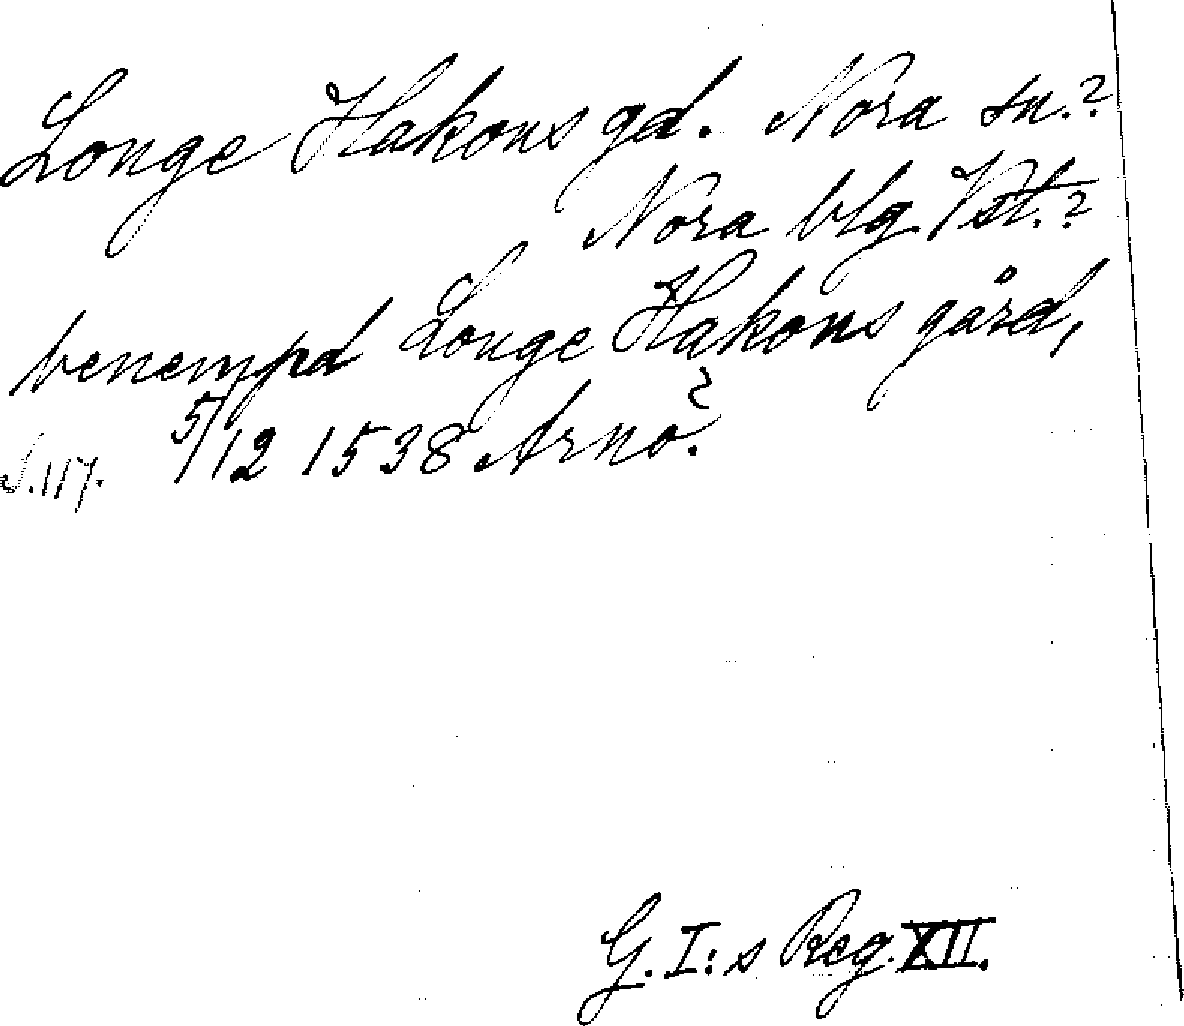 Longe Hakons gd. Nora sn.?
Nora blg Vst.?
benempd Longe Hakons gård,
5/12 1538 Arnö?
S. 117.
G. I:s Reg. XII.